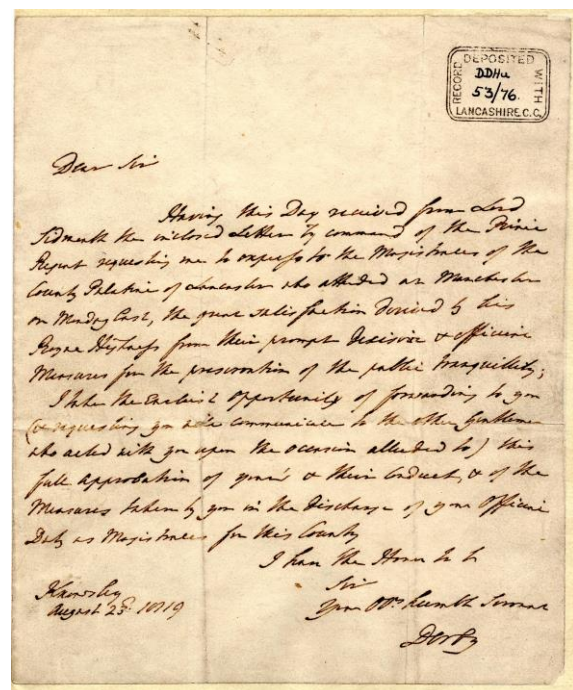 RECORD DEPOSITED WITH
DDHu
53/76.
LANCASHIRE C.C.
Dear Sir
Having this Day received from Lord
Sidmouth the inclosed Letter by command of the Prince
Regent requesting me to express to the Magistrates of the
County Palatine of Lancaster who attended at Manchester
on Monday Last, the great satisfaction derived by his
Royal Highness from their prompt decisive & efficient
Measures for the preservation of the public tranquillity;
I take the Earliest Opportunity of forwarding to you
(& requesting you will communicate to the other Gentlemen
who acted with you upon the occasion alluded to) this
full approbation of your's & their Conduct, & of the
Measures taken by you in the Discharge of your Official
Duty as Magistrates for this County
I have the Honor to be
Sir
Your Obt. humble Servant
Derby
Knowsley
August 23d. 1819